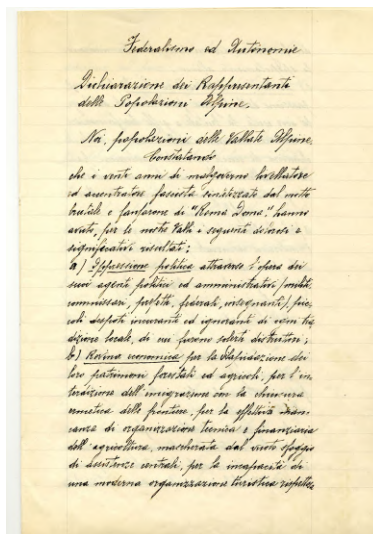 Federalismo ed Autonomie
Dichiarazione dei Rappresentanti
delle Popolazioni Alpine.
Noi, popolazioni delle Vallate Alpine.
Constatando
che i venti anni di malgoverno livellatore
ed accentratore fascista sintetizzato dal motto
brutale e fanfarone di "Roma Doma" hanno
avuto, per le nostre Valli i seguenti dolorosi e
significativi risultati;
a) Oppressione politica attraverso l'opera dei
suoi agenti politici ed amministrativi (militi,
commissari, prefetti, federali, insegnanti) picc
oli despoti incuranti ed ignoranti di ogni tra
dizione locale, di cui furono solerti distruttori;
b) Rovina economica per la dilapidazione dei
loro patrimoni forestali ed agricoli, per l'in
terdizione dell'emigrazione con la chiusura
ermetica delle frontiere, per la effettiva man
canza di organizzazione tecnica e finanziaria
dell'agricoltura, mascherata dal vasto sfoggio
di assistenze centrali, per la incapacità di
una moderna organizzazione turistica rispettosa